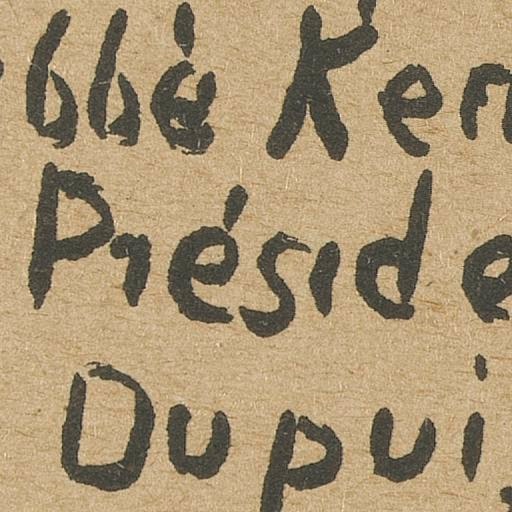 bbé Ker
Préside
Dupui